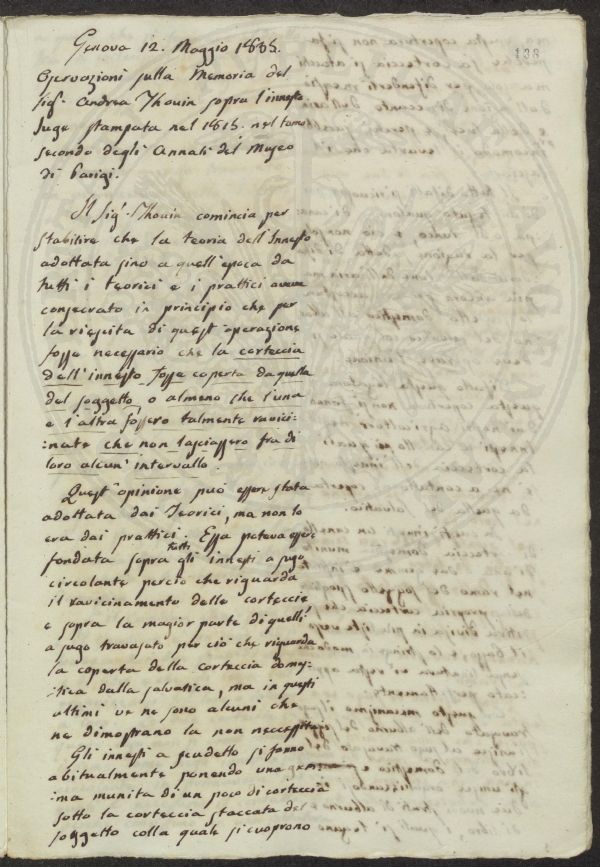 138
Genova 12. Maggio 1835.
Osservazioni sulla Memoria del
Sigr. Andrea Thouin sopra l'innesto
Juge stampata nel 1815. nel tomo
secondo degli Annali del Museo
di Parigi.
Il Sigr. Thouin comincia per
stabilire che la teoria dell'Innesto
adottata sino a quell'epoca da
tutti i teorici e i prattici aveva
consecrato in principio che per
la riescita di quest'operazione
fosse necessario che la corteccia
dell'innesto fosse coperta da quella
del soggetto o almeno che l'una
e l'altra fossero talmente ravici-
:nate che non lasciassero fra di
loro alcun'intervallo.
Quest'opinione può essere stata
adottata dai Teorici, ma non lo
era dai prattici. Essa poteva essere
fondata sopra tutti gli innesti a sugo
circolante perciò che riguarda
il ravicinamento delle corteccie
e sopra la magior parte di quelli
a sugo travasato per ciò che riguarda
la coperta della corteccia domes-
:tica dalla salvatica, ma in questi
ultimi ve ne sono alcuni che
ne dimostrano la non necessità
Gli innesti a scudetto si fanno
abitualmente ponendo una gem-
:ma munita di un poco di corteccia
sotto la corteccia staccata del
soggetto colla quale si cuoprono